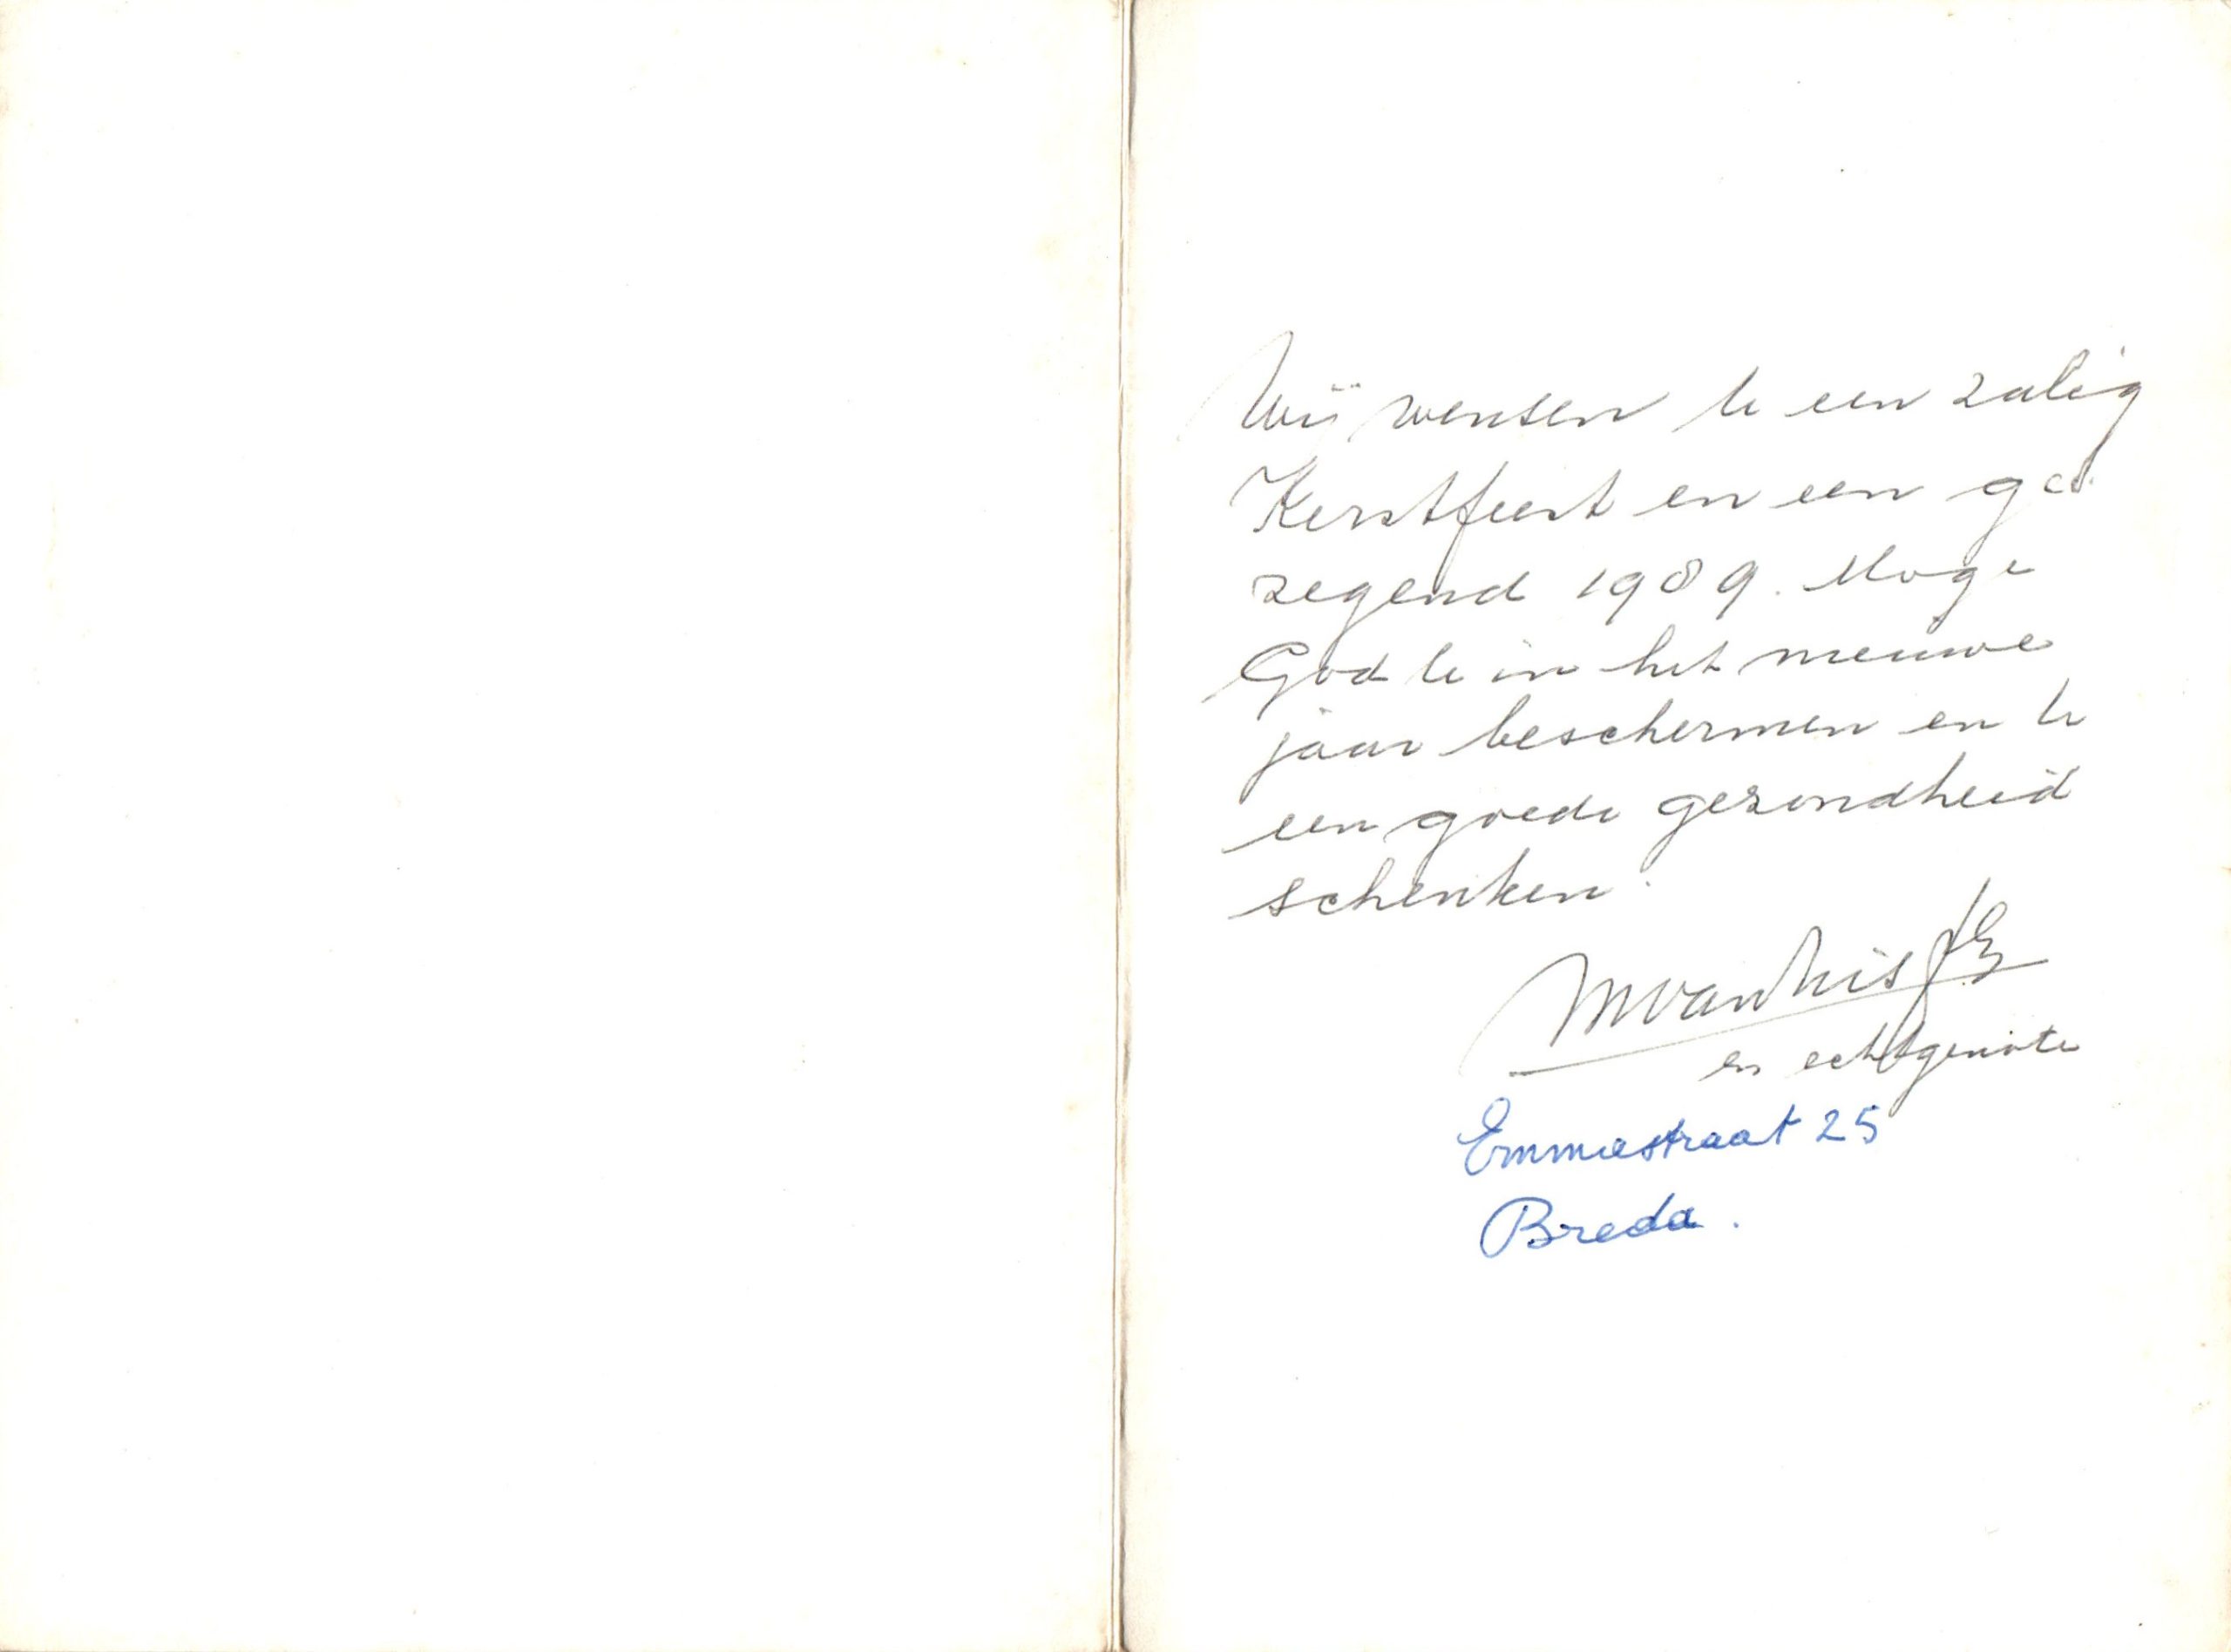 Wij wensen U een zalig
Kerstfeest en een ge
zegend 1989. Moge
God U in het nieuwe
jaar beschermen en U
een goede gezondheid
schenken.
M van Nis
en echtgenote
Emmastraat 25
Breda.